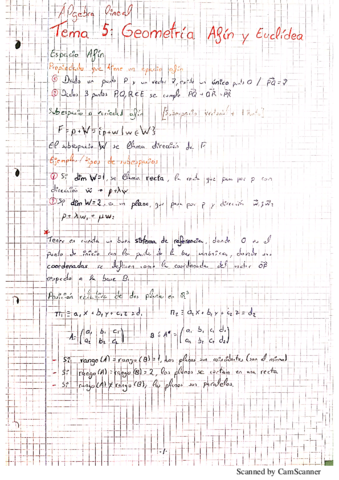 Álgebra Lineal
Tema 5: Geometría Afín y Euclídea
Espacio Afín
Propiedades que tiene un espacio afín
Dado un punto P, y un vector v, existe un único punto Q / PQ = v
Dados 3 puntos P, Q, R ∈ E se cumple PQ + QR = PR
Subespacio o variedad afín [Subespacio Vectorial + 1 Pto.]
F = p + W = {p + w | w ∈ W}
El subespacio W se llama dirección de F
Ejemplos/Tipos de subespacios
① Si dim W=1, se llama recta, la recta que pasa por p con
dirección w = p + λw
② Si dim W=2, es un plano, que pasa por p y dirección
p + λw₁ + μw₂
* Tener en cuenta un buen sistema de referencia, donde O es el
punto de inicio con los puntos de la base
coordenadas se definen como las coordenadas del vector OP
respecto a la base B.
Posición relativa de dos planos en
π₁ ≡ a₁x + b₁y + c₁z = d₁ π₂ ≡ a₂x + b₂y + c₂z = d₂
A: (a₁ b₁ c₁ B = A* = (a₁ b₁ c₁ d₁
a₂ b₂ c₂) a₂ b₂ c₂ d₂)
- Si rango(A) = rango(B) = 1, los planos son coincidentes (son el mismo)
- Si rango(A) = rango(B) = 2, los planos se cortan en una recta
- Si rango(A) ≠ rango(B), los planos son paralelos
-1-
Scanned by CamScanner